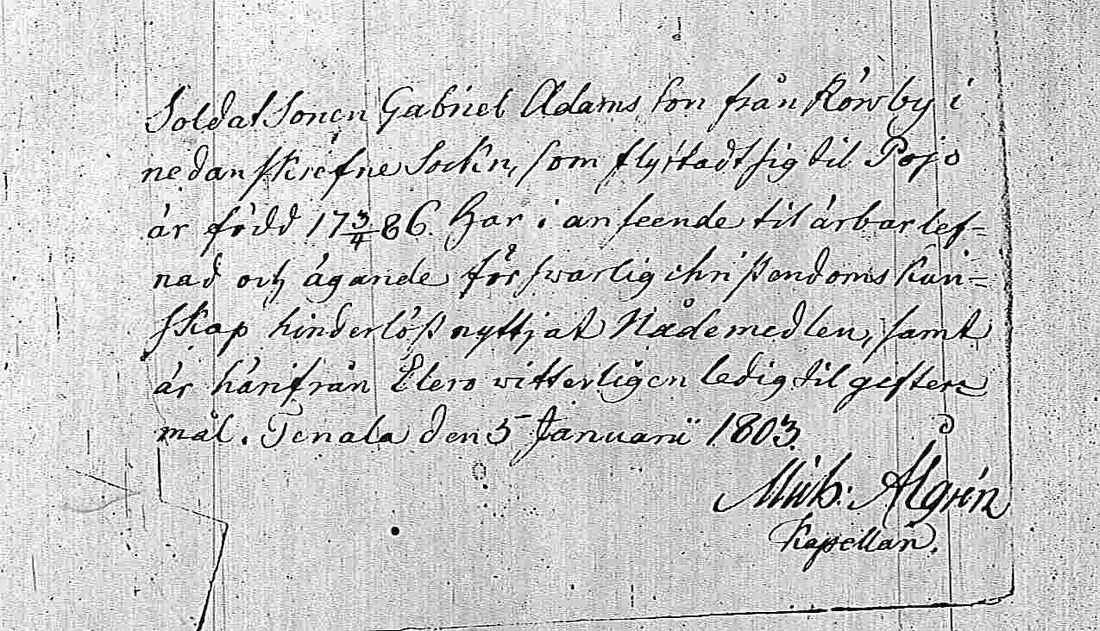 Soldat Sonen Gabriel Adams Son från Körwby i
nedanskrefne Sockn, som flyttadt sig til Pojo
är född 17 3/4 86. Har i anseende til ärbar lef=
nad och ägande försvarlig christendoms kun=
skap hinderlöst nyttjat Nådemedlen, samt
är härifrån Eders witterligen ledig til gifter
mål. Tenala den 5 Januarii 1803.
Mich: Algrén
Kapellan.